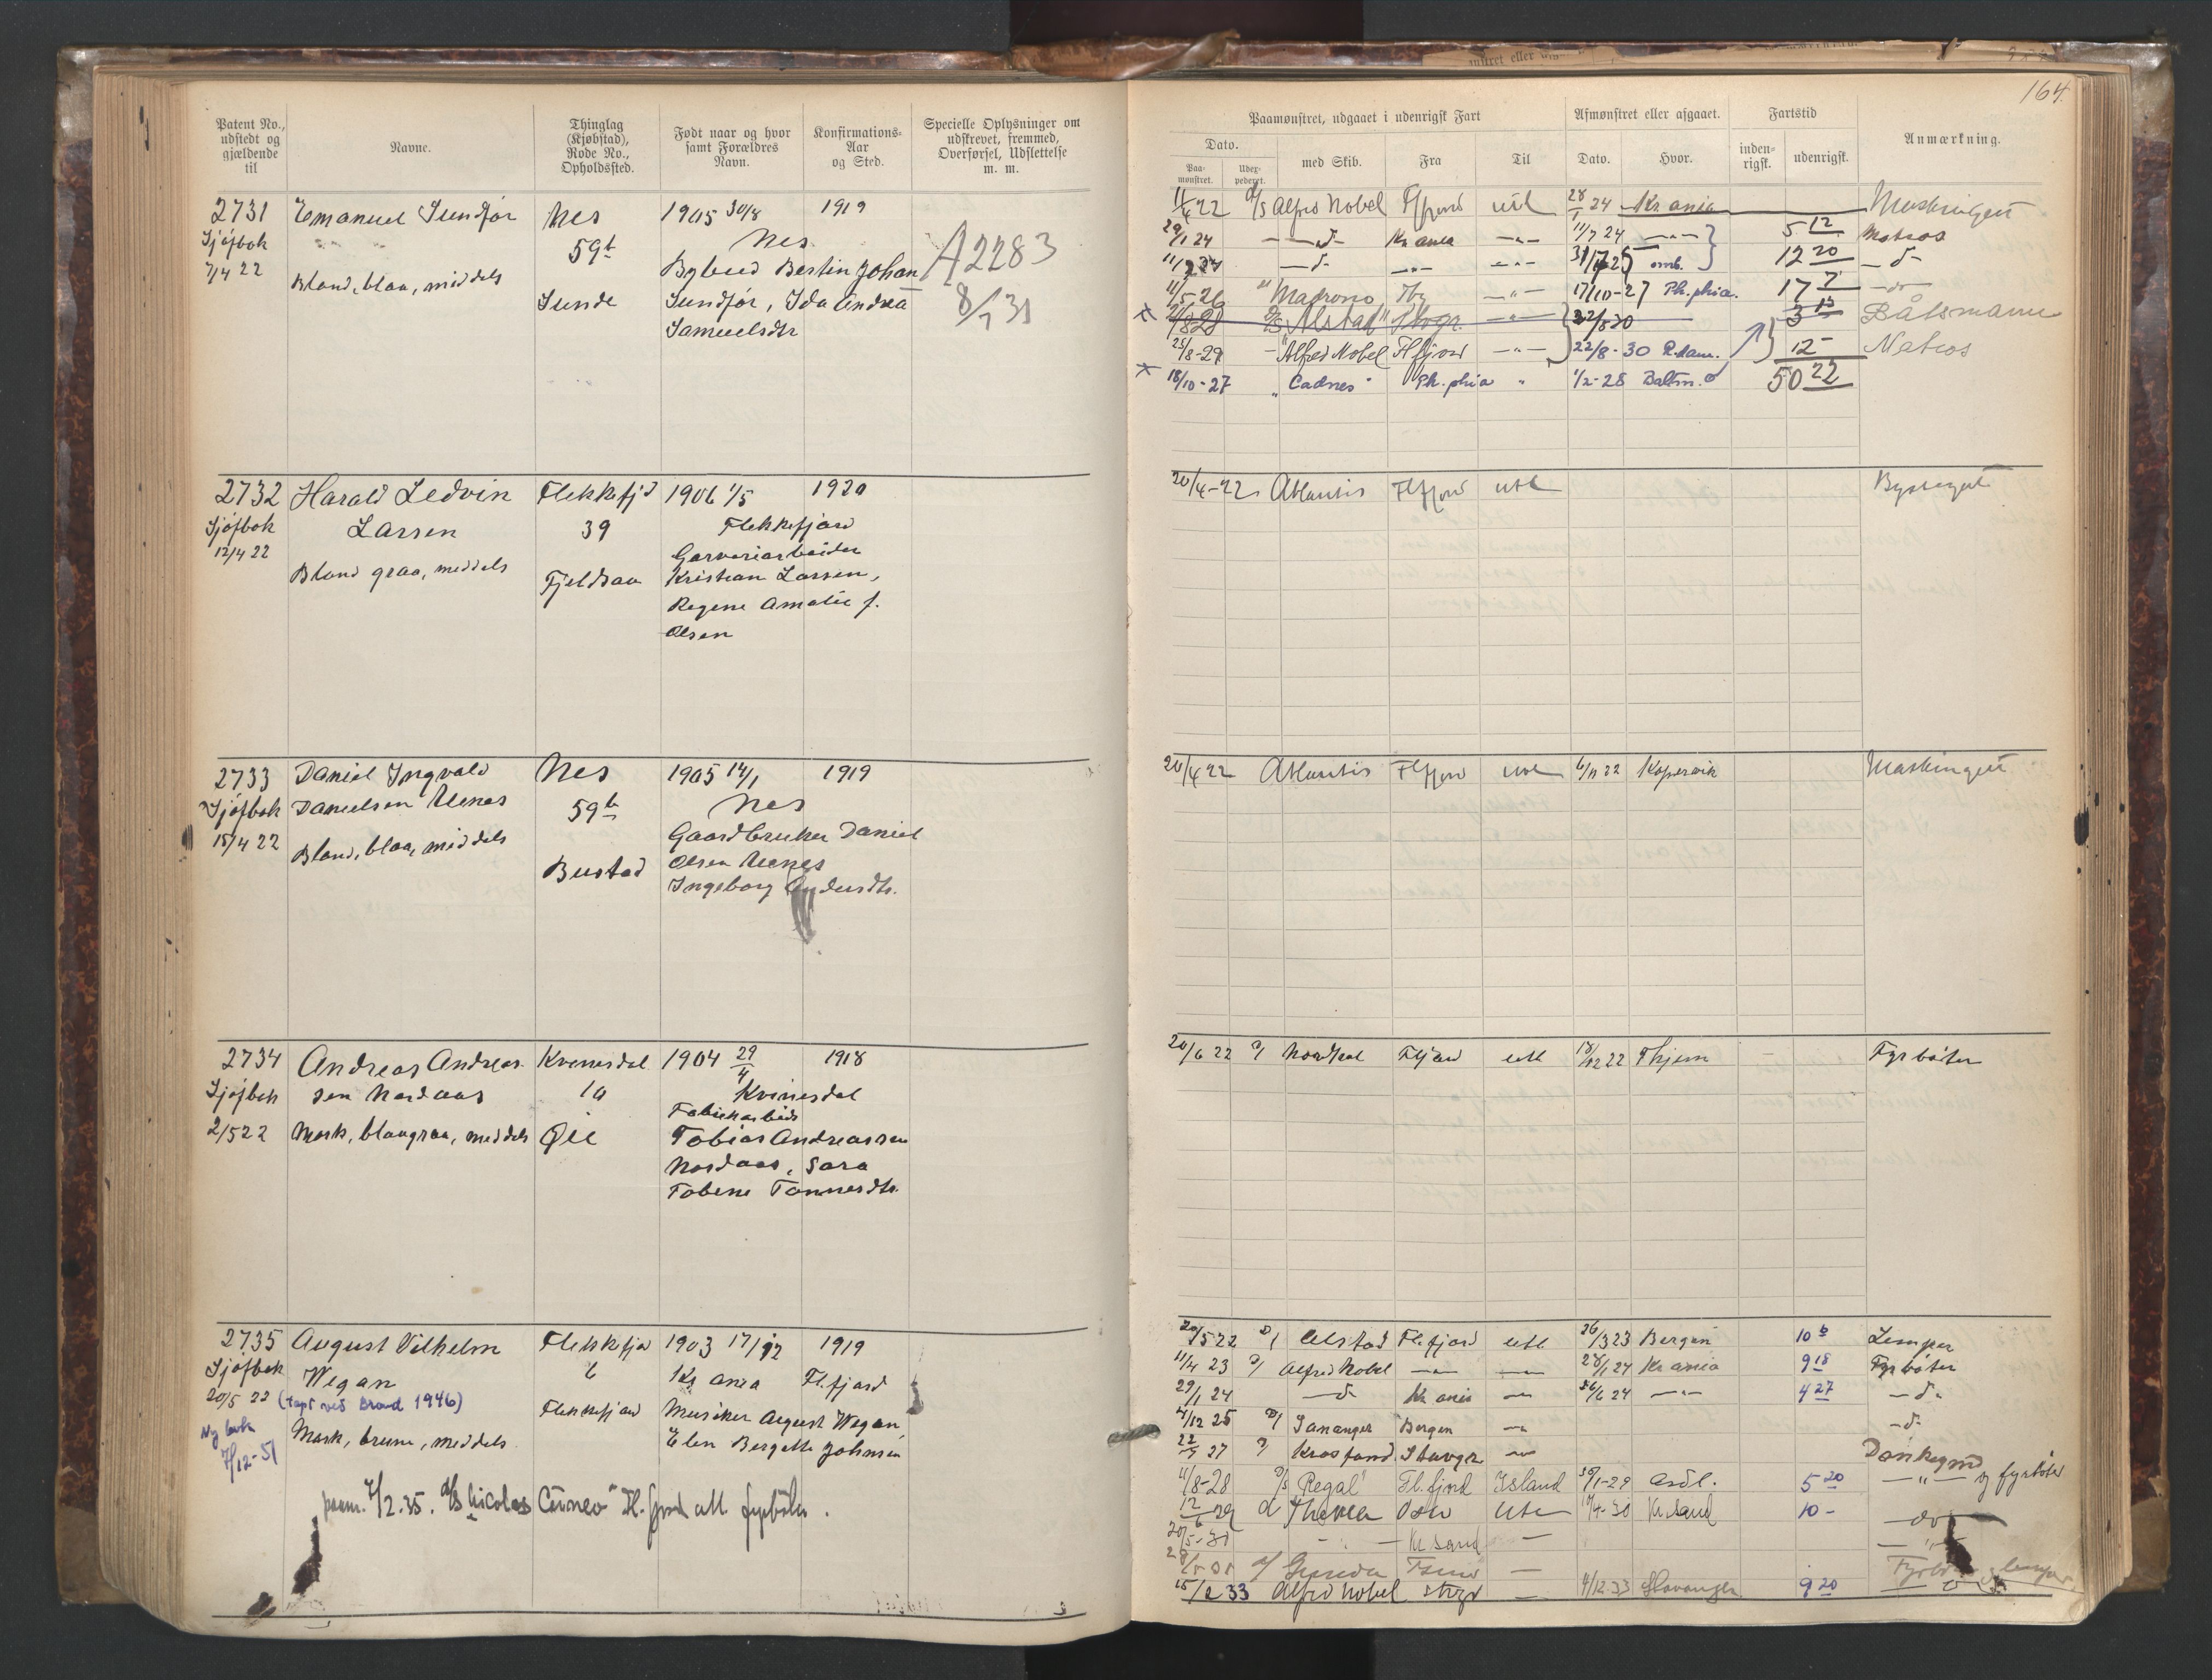 164.
Patent No., udstedt og gjældende til
Navne.
Thinglag (Kjøbstad), Rode No., Opholdssted.
Født naar og hvor samt Forældres Navn.
Konfirmations-Aar og Sted.
Specielle Oplysninger om udskrevet, fremmed, Overførsel, Udslettelse m. m.
Paamønstret, udgaaet i udenrigsk Fart
Afmønstret eller afgaaet.
Fartstid
Anmærkning.
Dato.
Paa-mønstret.
med Skib.
Fra
Til
Dato.
Hvor.
inden-rigsk.
udenrigsk.
2731 Emanuel Sundfør Nes 1905 30/8 1919
Sjøfbok 59b Nes A2283
7/4 22 Bland, blaa, middels Bybud Bertin Johan
Sunde Sundfør, Ida Andrea 8/1 31
Samuelsdtr
11/4 22 D/S Alfred Nobel Ffjord utl 28/1 24 Kr.ania Maskingutt
29/1 24 — d — Kr ania — " — 11/7 24 — " — 5 12 Matros
— d — — " — — " — omb. 12 20 — d —
11/5-26 " Matrono — " — 17/10-27 Ph.phia. 17 7
D/S "Alstad" — " — 3 Båtsmann
25/8-29 — Alfred Nobel Flfjord — " — 22/8-30 R.dam. 12 - Matros
18/10-27 " Cadnes " Ph.phia " 1/2-28 Baltm. 50 22
2732 Harald Ledvin Flekkefjd 1906 1/5 1920
Sjøfbok Larsen 39 Flekkefjord
12/4 22 Garveriarbeider
Bland graa, middels Fjeldsaa Kristian Larsen,
Regine Amalie f.
Olsen
20/4-22 Atlantis Flfjord utl Byssegut
2733 Daniel Ingvald Nes 1905 14/1 1919
Sjøfbok Danielsen Uenes 59b Nes
15/4 22 Bland, blaa, middels Gaardbruker Daniel
Bustad Olsen Uenes
Ingeborg Andersdtr.
20/4 22 Atlantis Flfjord utl 6/11 22 Kopervik Maskingutt
2734 Andreas Andreas- Kvinesdal 1904 29/4 1918
Sjøfbok sen Nordaas 10 Kvinesdal
Fabrikarbeid
2/5 22 Mørk, blaagraa, middels Øie Tobias Andreassen
Nordaas, Sara
Tobine Tønnesdtr.
20/6 22 D/ Nordpol Flfjord utl 18/12 22 Thjem Fyrbøter
2735 August Vilhelm Flekkefjd 1903 17/12 1919
Sjøfbok Wegan 6 Kr ania Fl.fjord
20/5 22 (tapt ved Brand 1946) Flekkefjord Musiker August Wegan,
Ny bok Mørk, brune, middels Elen Bergette Johnsen
7/12-51
paam. 7/2.35. D/S "Nicolas Cuneo" Fl.fjord utl fyrbøter.
20/5 22 D/ Alstad Fl.fjord utl 26/3 23 Bergen 10 6 Lemper
11/4 23 D/ Alfred Nobel — " — — " — 28/1 24 Kr ania 9 18 Fyrbøter
29/1 24 — d — Kr ania — " — 26/6 24 — " — 4 27 — d —
4/12 25 D/ Samanger Bergen — " — — d —
27 D/ Krosfond Stavgr — " — Donkeymd
11/8-28 D/S "Regal" Fl.fjord Island 30/1-29 Oslo. 5 20 — " — og fyrbøter
12/6 29 d Thorlea Oslo Utl 10/4-30 Kr.sand 10 - — do —
20/5-31 — " — Kr sand — — " —
28/5-31 D/ Fyrbøter, lemper
15/2 33 Alfred Nobel Stvgr — 4/12-33 Stavanger 9 20